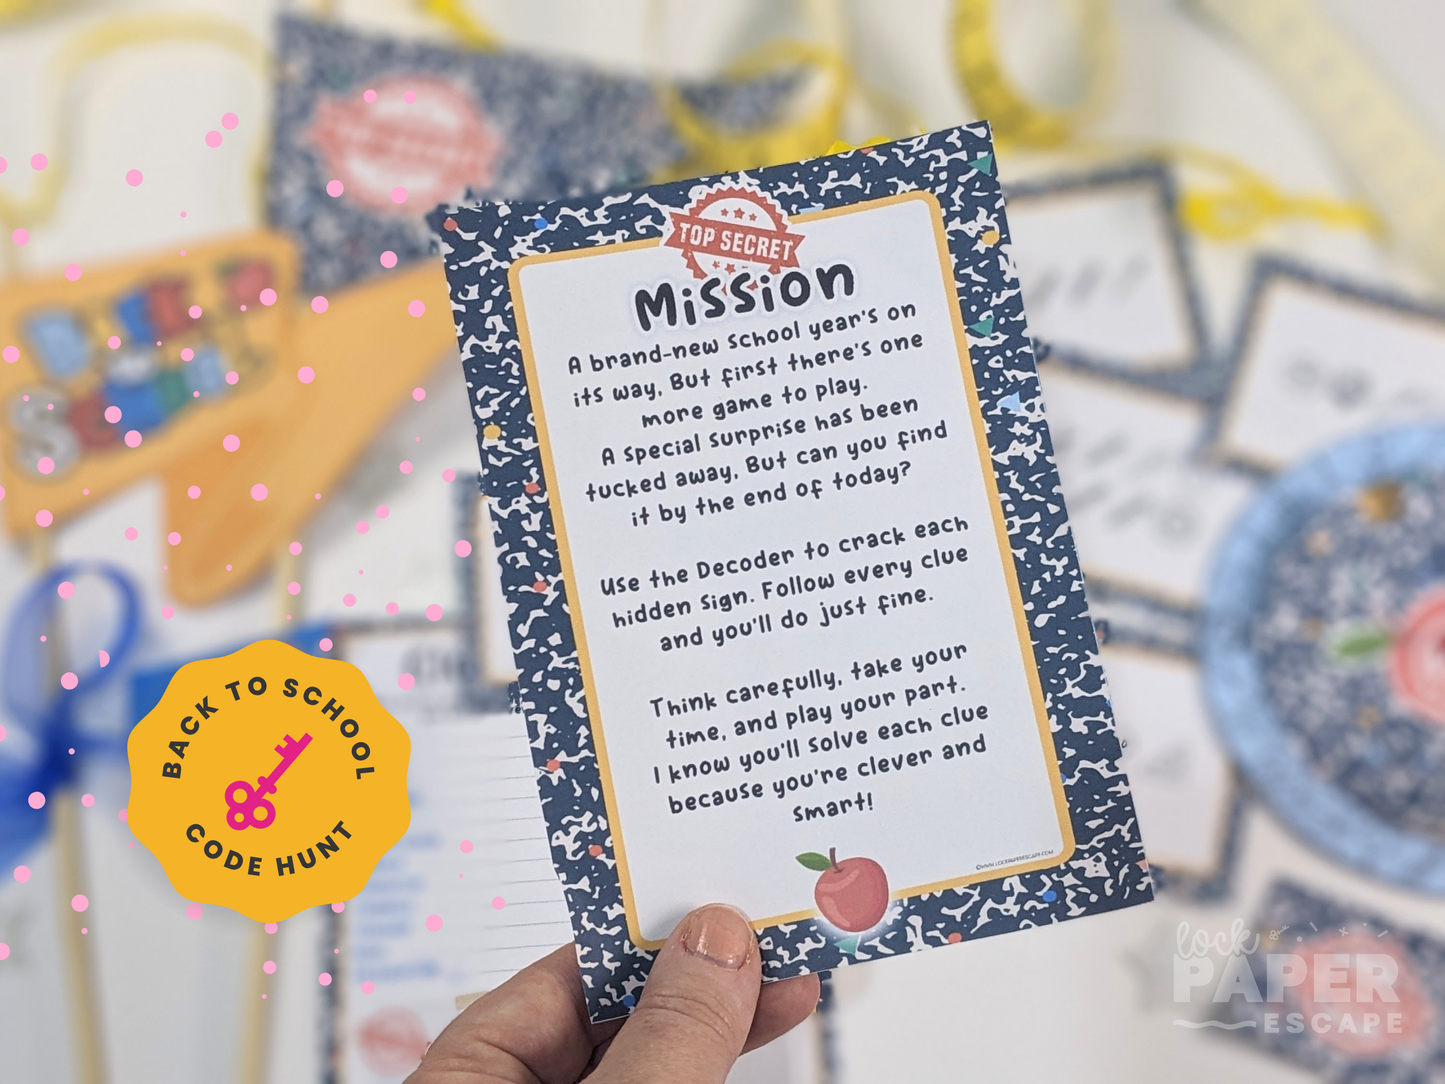 TOP SECRET
Mission
A brand-new school year's on
its way, But first there's one
more game to play.
A special surprise has been
tucked away, But can you find
it by the end of today?
Use the Decoder to crack each
hidden sign. Follow every clue
and you'll do just fine.
Think carefully, take your
time, and play your part.
I know you'll solve each clue
because you're clever and
smart!
©WWW.LOCKPAPERESCAPE.COM
BACK TO SCHOOL
CODE HUNT
lock
PAPER
ESCAPE